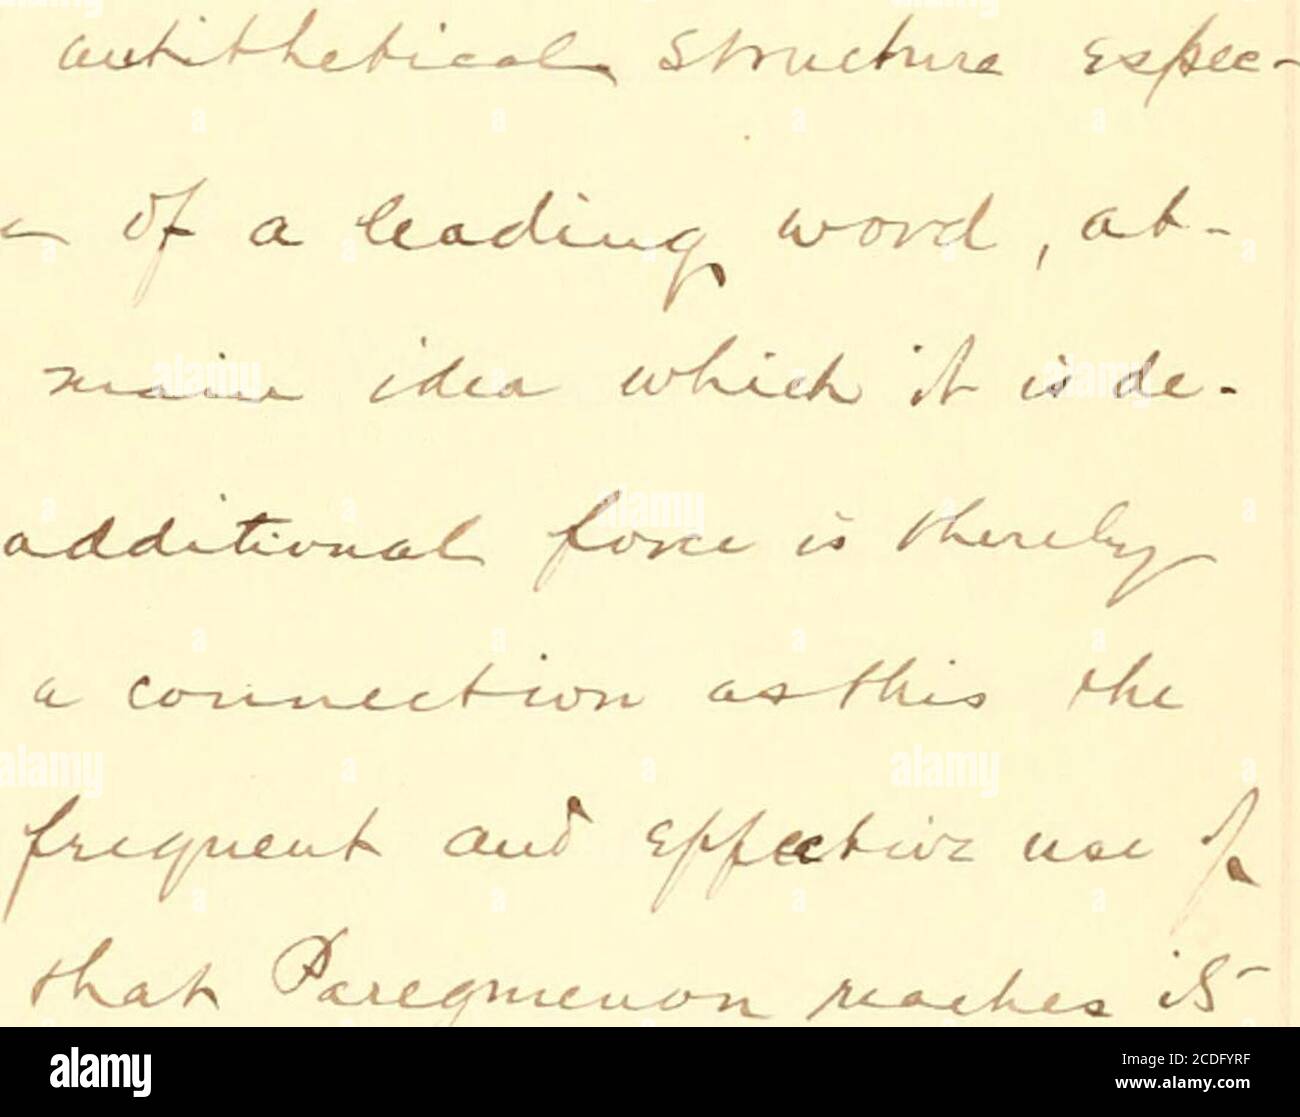 antithetical structure espec-
of a leading word, at-
main idea which it is de-
additional force is thereby
a connection as this the
frequent and effective use of
that Paregmenon reaches its
alamy
Image ID: 2CDFYRF
www.alamy.com